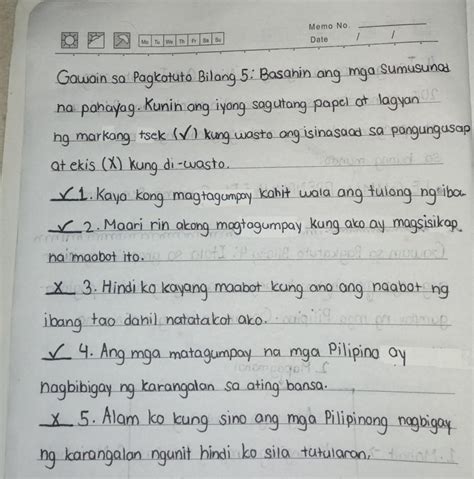 Memo No.
Mo Tu We Th Fr Sa Su
Date / /
Gawain sa Pagkatuto Bilang 5: Basahin ang mga sumusunod
na pahayag. Kunin ang iyong sagutang papel at lagyan
ng markang tsek (✓) kung wasto ang isinasaad sa pangungusap
at ekis (X) kung di-wasto.
✓ 1. Kaya kong magtagumpay kahit wala ang tulong ng iba
✓ 2. Maari rin akong magtagumpay kung ako ay magsisikap
na maabot ito.
x 3. Hindi ko kayang maabot kung ano ang naabot ng
ibang tao dahil natatakot ako.
✓ 4. Ang mga matagumpay na mga Pilipino ay
nagbibigay ng karangalan sa ating bansa.
x 5. Alam ko kung sino ang mga Pilipinong nagbigay
ng karangalan ngunit hindi ko sila tutularan.